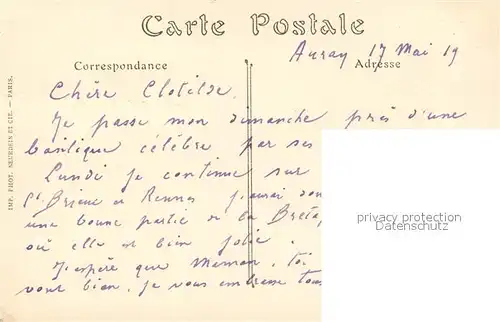 Carte Postale
Auray 17 Mai 19
Correspondance
Adresse
Chère Clotilde.
Je passe mon dimanche près d'une
basilique célèbre par ses
Lundi je continue sur
St Brieuc et Rennes j'aurai
une bonne partie de la
où elle est bien jolie.
J'espère que Maman, toi
vont bien. Je vous embrasse tous
IMP. PHOT. NEURDEIN ET CIE. — PARIS.
privacy protection
Datenschutz